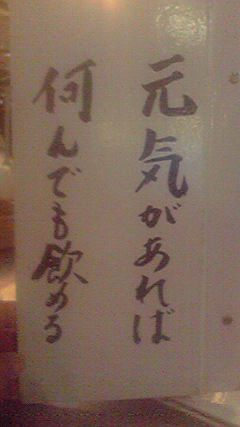 元気があれば
何んでも飲める